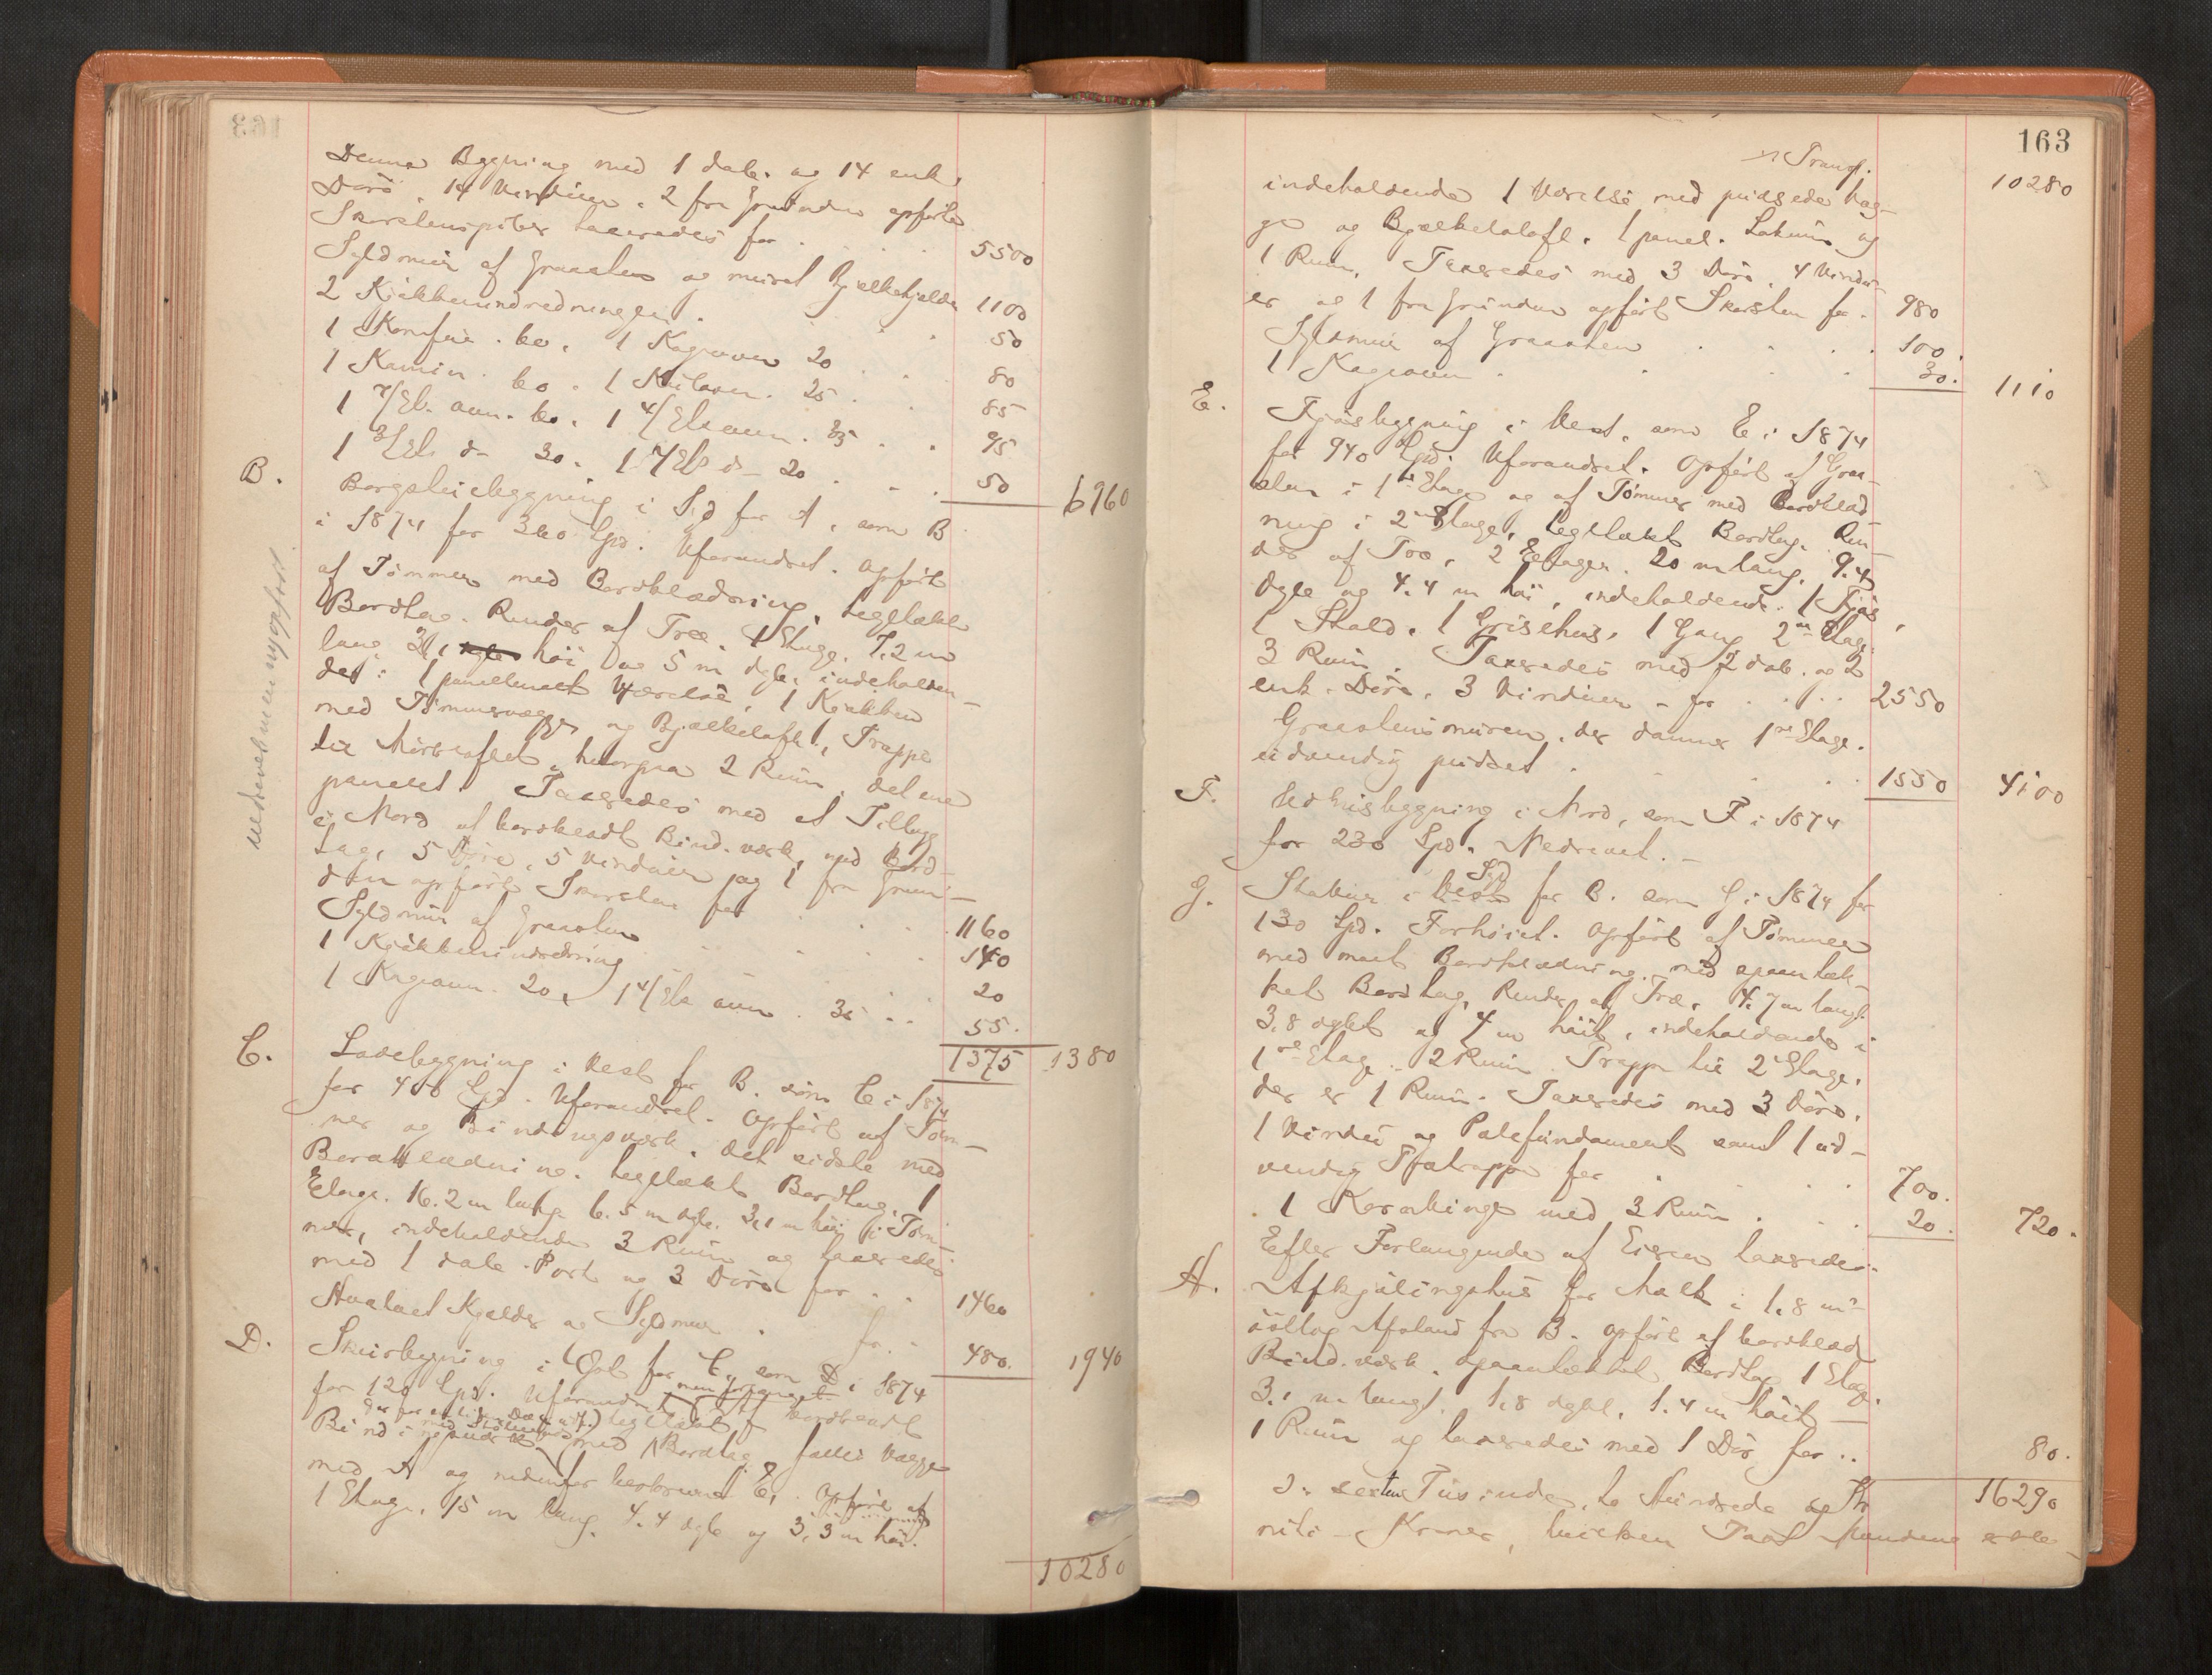 Denne Bygning med 1 dob. og 14 enk.
Døre, 14 Vinduer, 2 fra Grunden opførte
Skorstenspiber taxeredes for . . . 5500
Syldmur af Graasten og muret Bjælkekjelder 1100
2 Kjøkkenindredninger . . . 50
1 Komfur . 60, 1 Kagovn 20 . . 80
1 Kamin . 60 . 1 Kulovn . 25 . . 85
1 7/Et. ovn . 60, 1 4/Et ovn . 35 . . 95
1 3/Et. do 30. 1 7/Et do 20 . . . 50
6960
B. Borgstuebygning i Syd for A, som B
i 1874 for 360 Spd. Uforandret. Opført
af Tømmer med Bordklædning, tegltækt
Bordtag. Render af Træ. 1 Etage. 7.2 m
lang, 3.1 høi og 5 m dyb, indeholden-
de: 1 panellmalt Værelse, 1 Kjøkken
med Tømmervægge og Bjælkeloft, Trappe
til Mørkloftet, hvorpaa 2 Rum, det ene
panelet. Taxeredes med et Tilbygg
i Nord af bordklædt Bind.værk, med Bord-
tag, 5 Døre, 5 Vinduer og 1 fra Grun-
den opført Skorsten for . . . 1160
Syldmur af Graasten . . . 140
1 Kjøkkenindredning . . . 20
1 Kagovn . 20, 1 4/Et. ovn . 35 . . 55.
1375 1380
nedrevet men nyopført.
C. Ladebygning i Vest for B. som C i 1874
for 400 Spd. Uforandret. Opført af Tøm-
mer og Bindingsværk, det sidste med
Bordklædning, tegltækt Bordtag, 1
Etage. 16.2 m lang 6.5 m dyb. 3,1 m høi i Tøm-
mer, indeholdende 3 Rum og taxeredes
med 1 dob. Port og 3 Døre for . . 1460
Hvælvet Kjelder og Syldmur . for . . 480.
1940
D. Skurbygning i Øst for C, som D i 1874
for 120 Spd. Uforandret men forlænget bordklædt
Bindingsværk med tegltækt Bordtag, fælles Vægge
med A og nedenfor beskrevne E, Opført af
1 Etage, 15 m lang. 4.4 dyb og 3,3 m høi.
10280
163
Transp. 10280
indeholdende 1 Værelse med pudsede Væg-
ge og Bjælkeloft, 1 panel. Lokum og
1 Rum. Taxeredes med 3 Døre, 4 Vindu-
er og 1 fra Grunden opført Skorsten for . 980
Syldmur af Graasten . . . 100.
1 Kagovn . . . 30. 1110
E. Fjøsbygning i Vest, som E i 1874
for 940 Spd. Uforandret. Opført af Graa-
sten i 1ste Etage og af Tømmer med Bordklæd-
ning i 2den Etage, tegltækt Bordtag. Ren-
der af Træ, 2 Etager. 20 m lang, 9.4
dyb og 4.4 m høi, indeholdende: 1 Fjøs,
1 Stald, 1 Grisehus, 1 Gang 2den Etage
3 Rum. Taxeredes med 2 dob. og 2
enk. Døre, 3 Vinduer - for . . . 2550
Graastensmuren, der danner 1ste Etage,
udvendig pudset . . . 1550 4100
F. Vedhusbygning i Nord, som F i 1874
for 230 Spd. Nedrevet. -
G. Stabur i Syd for B. som G i 1874 for
130 Spd. Forhøiet. Opført af Tømmer
med malt Bordklædning, med spaantæk-
ket Bordtag, Render af Træ, 4.7 m langt
3,8 dybt og 4 m høit, indeholdende i
1ste Etage 2 Rum. Trappe til 2den Etage,
der er 1 Rum. Taxeredes med 3 Døre,
1 Vindu og Pælefundament samt 1 ud-
vendig Trætrappe for . . . 700.
1 Kornbinge med 3 Rum . . . 20. 720.
Efter Forlangende af Eieren taxeredes:
H. Afkjølingshus for Melk i 1,8 m's
østlig Afstand fra B. Opført af bordklædt
Bind.værk, spaantækket Bordtag 1 Etage.
3,1 m langt, 1,8 dybt, 1.4 m høit -
1 Rum og taxeredes med 1 Dør for . . 80.
16290
sexten Tusinde, to Hundrede og
niti Kroner, hvilken Taxt Mændene